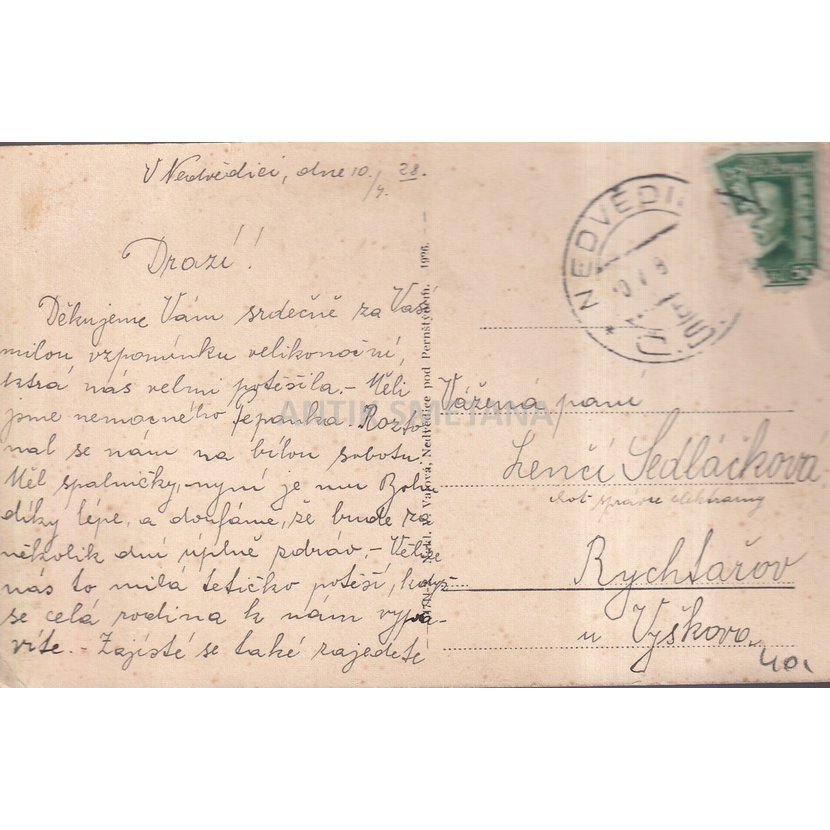 V Nedvědici, dne 10./4. 28.
Drazí!
Děkujeme Vám srdečně za Vaší
milou vzpomínku velikonoční,
která nás velmi potěšila. – Měli
jsme nemocného Pepanka. Rozto
nal se nám na bílou sobotu.
Měl spalničky, nyní je mu Bohu
díky lépe, a doufáme, že bude za
několik dní úplně zdráv. – Velice
nás to milá tetičko potěší, když
se celá rodina k nám vypra-
víte. – Zajisté se také zajedete
Nakl. V. Vařová, Nedvědice pod Pernštýnem. 1926.
NEDVĚDI
ČSR
50
ANTIK SMETANA
Vážená paní
Lenčí Sedláčková
správce elektrárny
Rychtářov
u Vyškova
40,